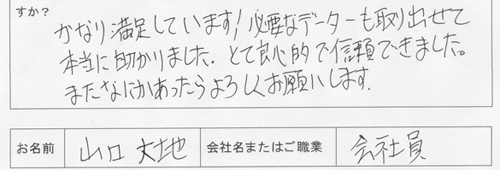 すか?
かなり満足しています!必要なデーターも取り出せて
本当に助かりました.とて良心的で信頼できました。
またなにかあったらよろしくお願いします.
お名前 山口 丈地 会社名またはご職業 会社員